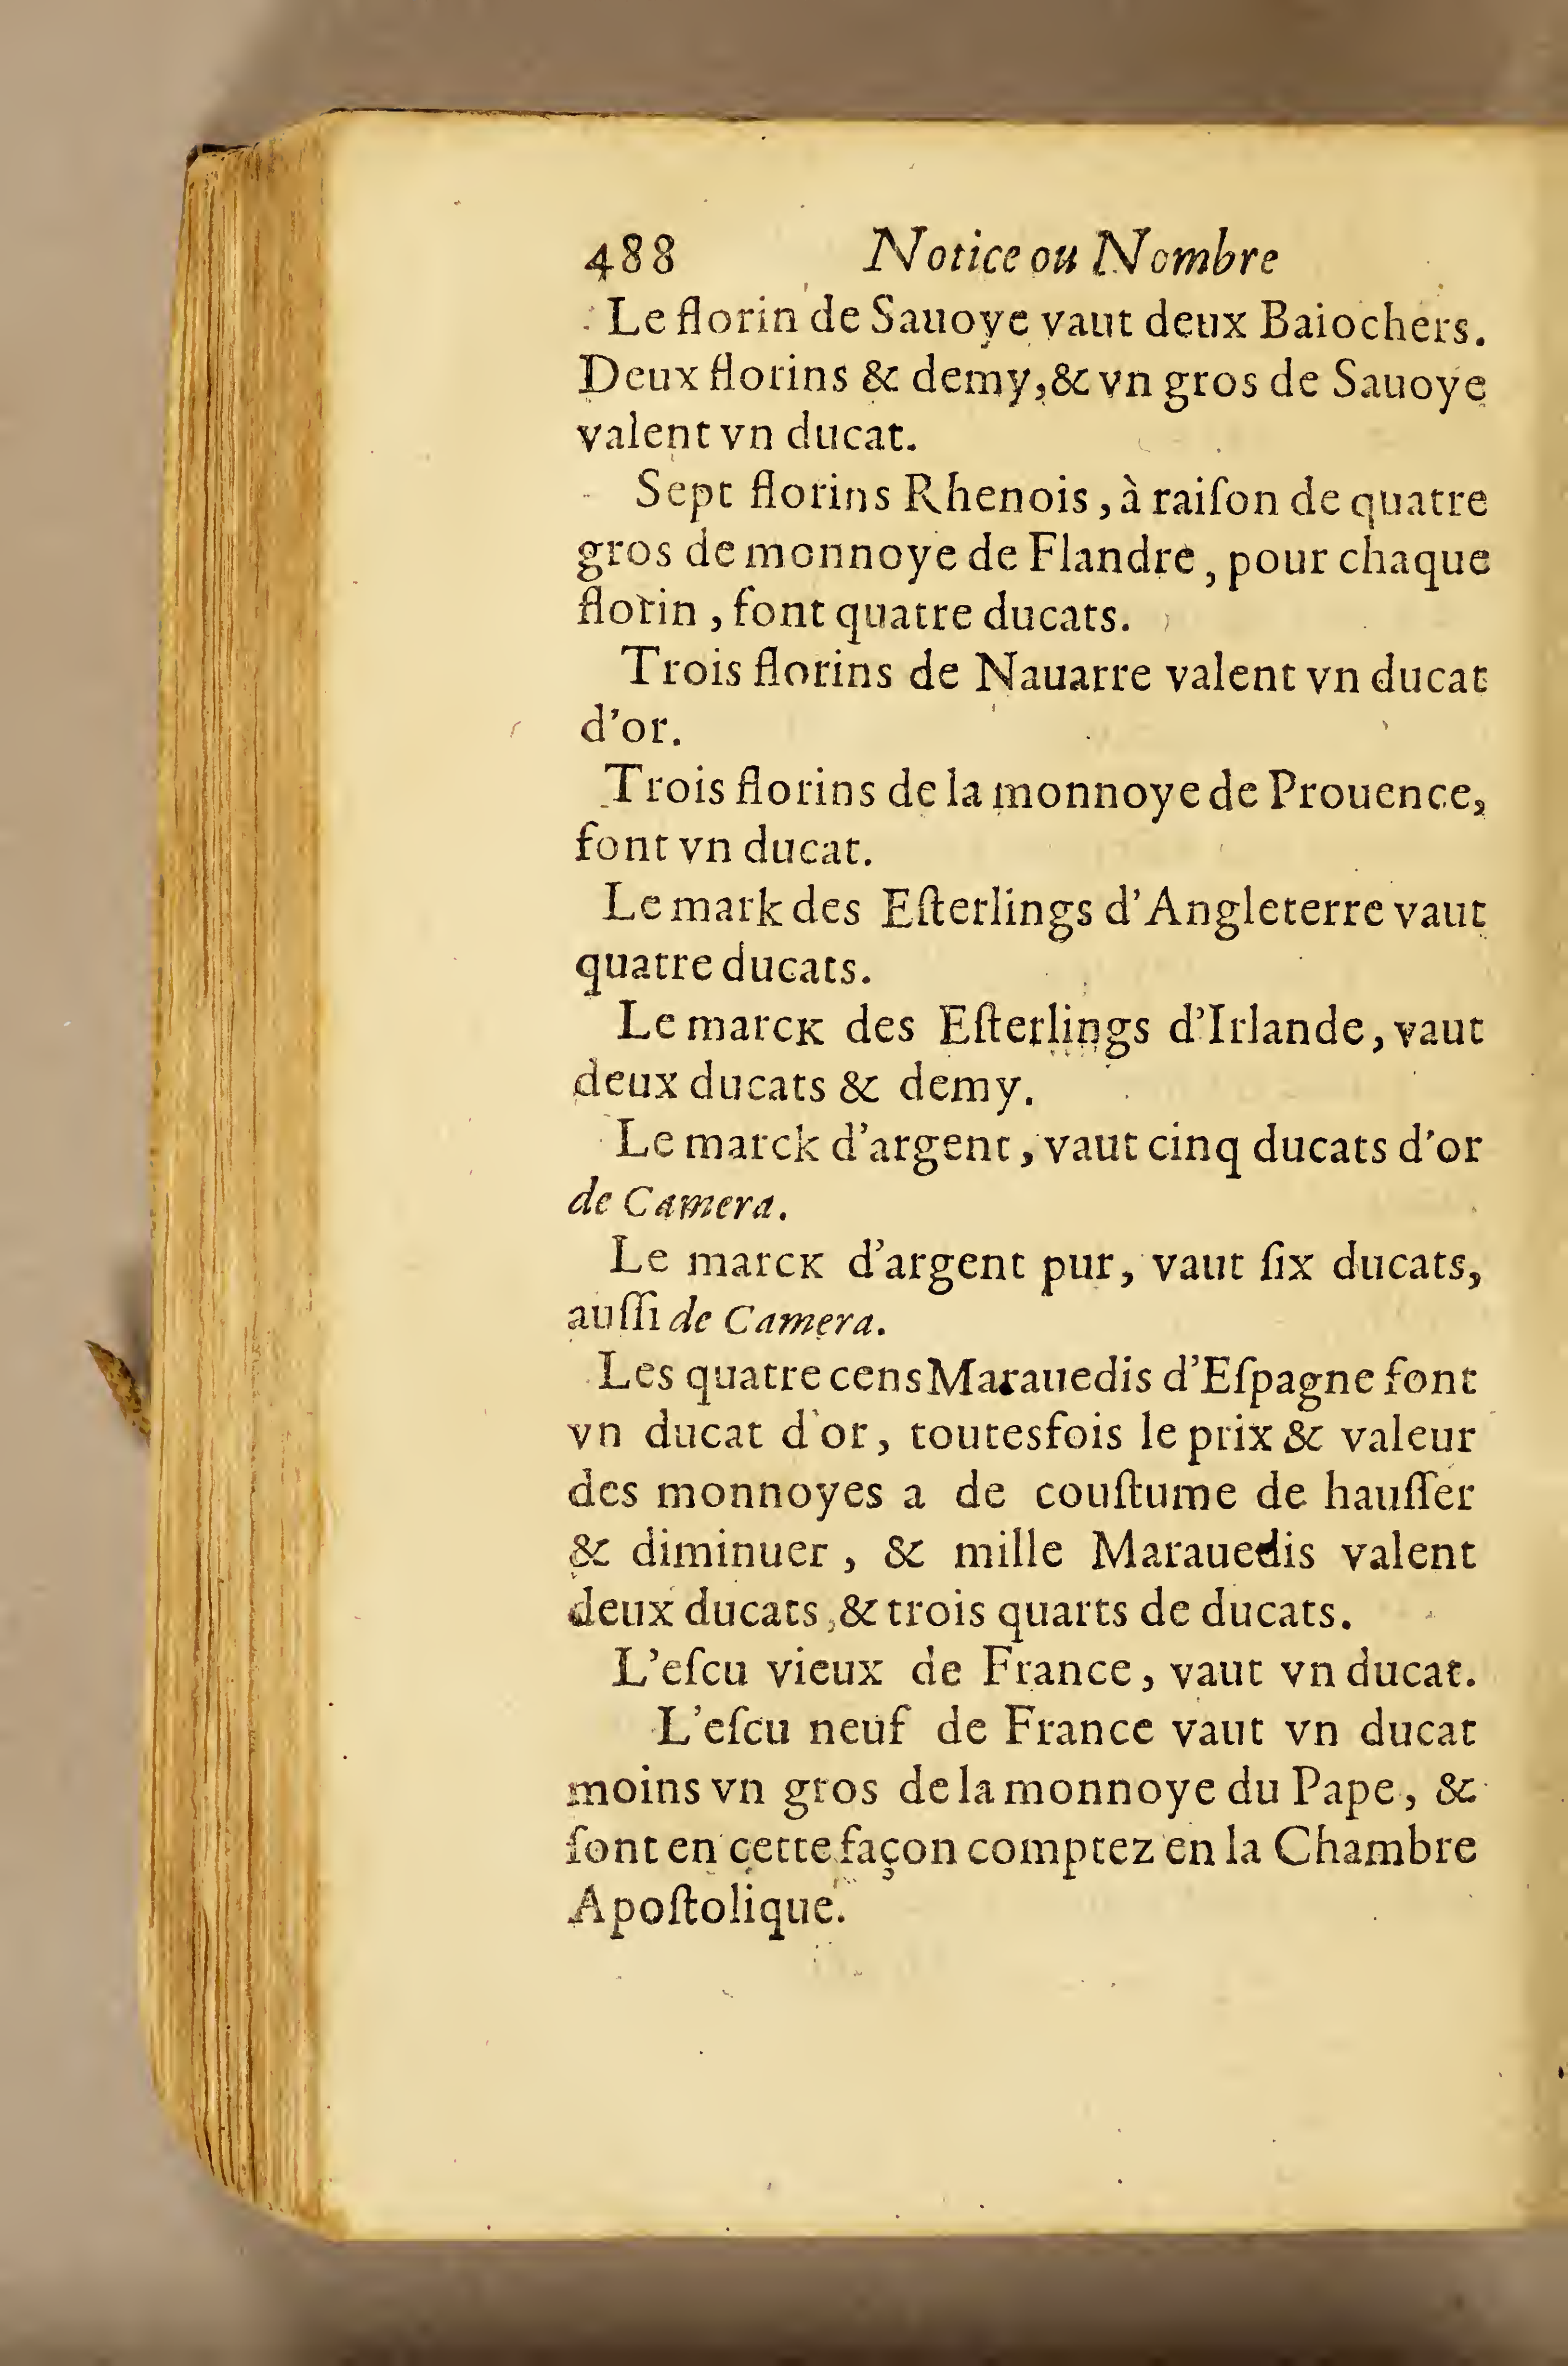 488 Notice ou Nombre
Le florin de Sauoye vaut deux Baiochers.
Deux florins & demy, & vn gros de Sauoye
valent vn ducat.
Sept florins Rhenois, à raiſon de quatre
gros de monnoye de Flandre, pour chaque
florin, font quatre ducats.
Trois florins de Nauarre valent vn ducat
d'or.
Trois florins de la monnoye de Prouence,
font vn ducat.
Le mark des Eſterlings d'Angleterre vaut
quatre ducats.
Le marcK des Eſterlings d'Irlande, vaut
deux ducats & demy.
Le marck d'argent, vaut cinq ducats d'or
de Camera.
Le marcK d'argent pur, vaut ſix ducats,
auſſi de Camera.
Les quatre cens Marauedis d'Eſpagne font
vn ducat d'or, toutesfois le prix & valeur
des monnoyes a de couſtume de hauſſer
& diminuer, & mille Marauedis valent
deux ducats, & trois quarts de ducats.
L'eſcu vieux de France, vaut vn ducat.
L'eſcu neuf de France vaut vn ducat
moins vn gros de la monnoye du Pape, &
ſont en cette façon comptez en la Chambre
Apoſtolique.